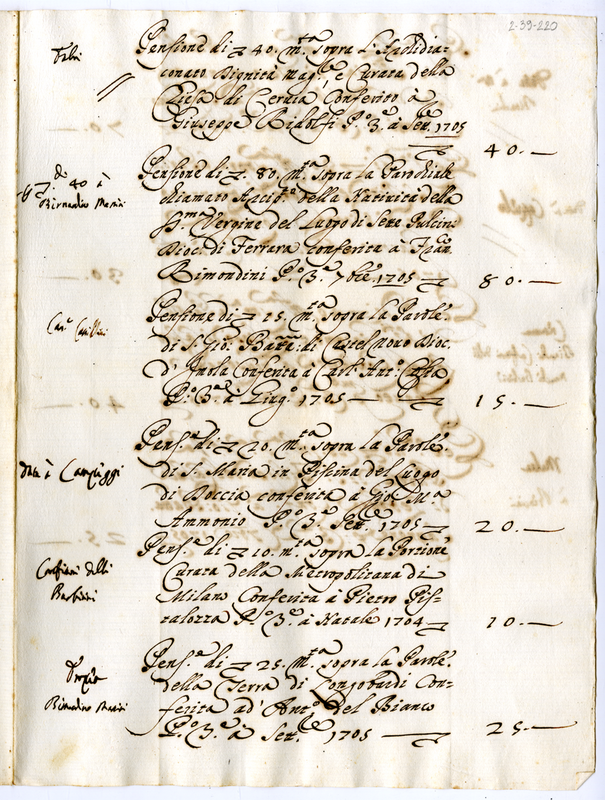 2-39-220
Pensione di 40. m.ta sopra L'Archidia:
conato Dignità mag.re e Curata della
Chiesa di Cervia Conferito à
Giuseppe Ridolfi P.o 3.a à Sett. 1705
40. —
di 40 à
Bernardino Marini
Pensione di 80. m.ta sopra la Parochiale
chiamata della Natività della
SS.ma Vergine del Luogo di Sette Pulcini
Dioc. di Ferrara conferita à Fran.
Rimondini P.o 3.a 7bre 1705
80. —
Pensione di 15. m.ta sopra la Parole.
di S. Gio: Batta: di Castel Novo Dioc.
d'Imola Conferita à Carl' Ant.o
P.o 3.a à Giug.o 1705
15. —
Data à Campeggi
Pens.e di 20. m.ta sopra la Parole.
di S. Maria in Piscina del Luogo
di Boccia conferita à Gio: M.a
Ammonio P.o 3.a Sett.e 1705
20. —
Pens.e di 10. m.ta sopra la Porzione
Curata della Metropolitana di
Milano Conferita à Pietro Pis-
ralozza P.o 3.a à Natale 1704
10. —
Barberini
Pens.e di 25. m.ta sopra la Parole.
della Terra di Longobardi Con-
ferita ad' Ant.o del Bianco
P.o 3.a à Sett.e 1705
25 —
Bernardino Marini